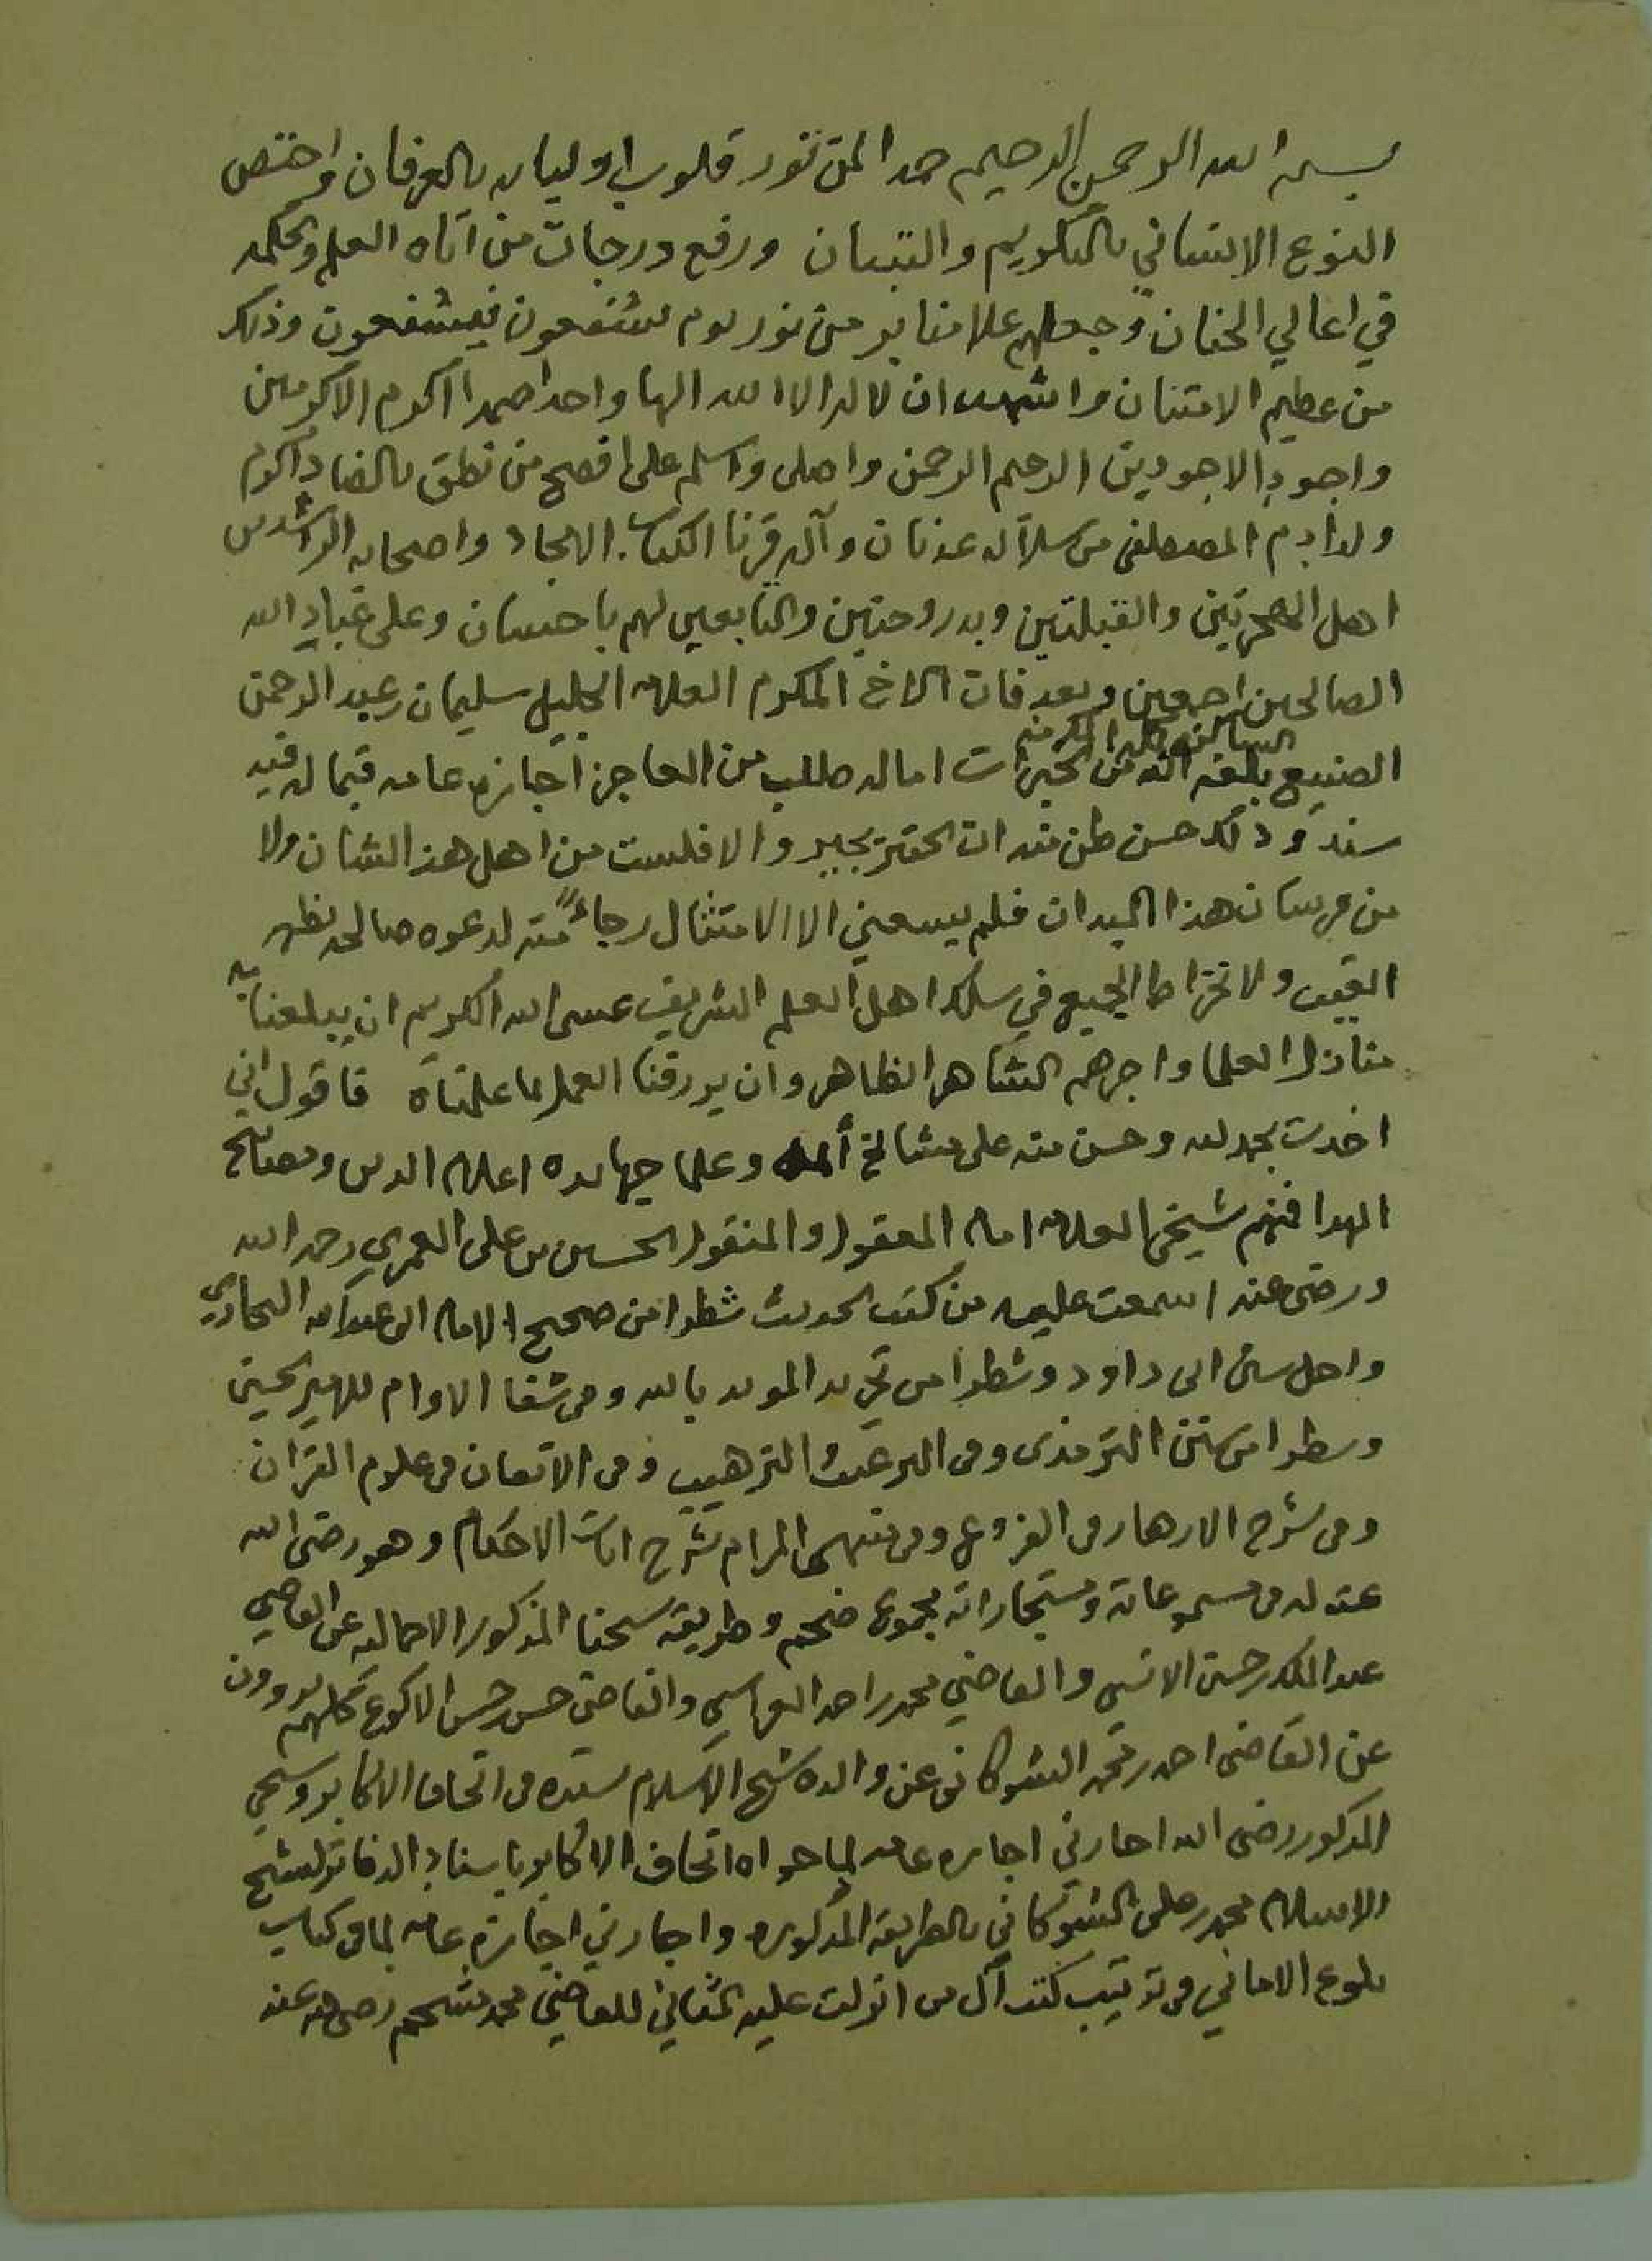 بسم الله الرحمن الرحيم حمدا لمن نور قلوب اوليائه بالعرفان واختص
النوع الانساني بالتكريم والتبيان ورفع درجات من آتاه العلم والحكمه
في اعالي الجنان وجعلهم علا منابر من نور يوم يستشفعون فيشفعون وذلك
من عظيم الامتنان واشهد ان لا اله الا الله الها واحدا صمدا اكرم الاكرمين
واجود الاجودين الرحيم الرحمن واصلي واسلم على افصح من نطق بالضاد واكرم
ولد ادم المصطفى من سلالة عدنان وآله قرنا الكتاب الامجاد واصحابه الراشدين
اهل الهجرتين والقبلتين وبدر وحنين والتابعين لهم باحسان وعلى عباد الله
الصالحين اجمعين وبعد فان الاخ المكرم العلامه الجليل سليمان بن عبد الرحمن
الساكن مكه المكرمه
الصنيع بلغه الله من الخيرات اماله طلب من العاجز اجازه عامه فيما له فيه
سند وذلك حسن ظن منه ان الحقير يجيز والا فلست من اهل هذا الشان ولا
من فرسان هذا الميدان فلم يسعني الا الامتثال رجاءً منه لدعوه صالحه بظهر
الغيب ولانخراط الجميع في سلك اهل العلم الشريف عسى الله الكريم ان يبلغنا به
منازل العلما واجرهم الظاهر وان يرزقنا العمل بما علمناه فاقول اني
اخذت بحمد الله وحسن منه على مشائخ أئمه وعلما جهابده اعلام الدين ومصابيح
الهدا فمنهم شيخي العلامه امام المعقول والمنقول الحسين بن علي العمري رحمه الله
ورضي عنه اسمعت عليه من كتب الحديث شطرا من صحيح الامام ابي عبد الله البخاري
واجل سنن ابي داود وشطرا من تجريد المويد بالله ومن شفا الاوام للامير الحسين
وشطرا من سنن الترمذي ومن الترغيب والترهيب ومن الاتقان في علوم القرآن
ومن شرح الازهار في الفروع ومن منتهى المرام شرح ايات الاحكام وهو رضي الله
عنه له من مسموعاته ومستجازاته مجموع ضخم وطريقه شيخنا المذكور الاجماليه عن القاضي
عبد الملك بن حسين الانسي والقاضي محمد بن احمد العراسي والقاضي حسن بن حسن الاكوع كلهم يروون
عن القاضي احمد بن محمد الشوكاني عن والده شيخ الاسلام بسنده في اتحاف الاكابر وشيخي
المذكور رضي الله اجازني اجازه عامه لما حواه اتحاف الاكابر باسناد الدفاتر لشيخ
الاسلام محمد بن علي الشوكاني بالطريقه المذكوره واجازني اجازه عامه لما في كتاب
بلوغ الاماني في ترتيب كتب آل من انزلت عليه المثاني للقاضي محمد مشحم رضي الله عنه